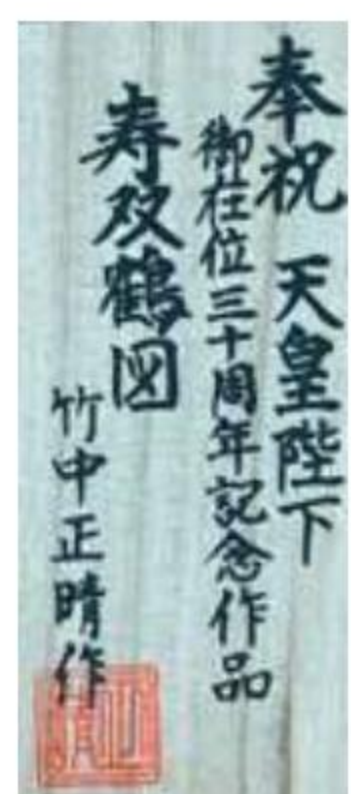 奉祝 天皇陛下
御在位三十周年記念作品
寿双鶴図
竹中正晴作